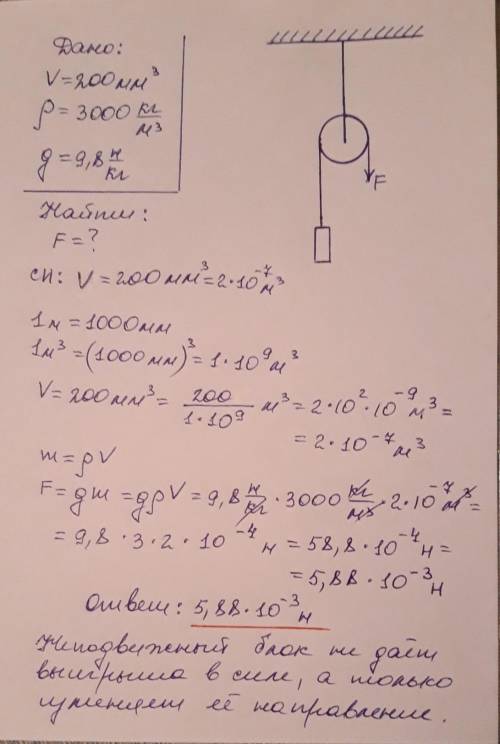 Дано:
V=200мм³
ρ = 3000 кг/м³
g = 9,8 н/кг
Найти:
F = ?
F
си: V = 200 мм³ = 2·10⁻⁷ м³
1м = 1000мм
1м³ = (1000мм)³ = 1·10⁹ м³
V = 200мм³ = 200/1·10⁹ м³ = 2·10²·10⁻⁹ м³ =
= 2·10⁻⁷ м³
m = ρV
F = gm = gρV = 9,8 н/кг · 3000 кг/м³ · 2·10⁻⁷ м³ =
= 9,8 · 3 · 2 · 10⁻⁴ н = 58,8 · 10⁻⁴ н =
= 5,88 · 10⁻³ н
Ответ: 5,88 · 10⁻³ н
Неподвижный блок не даёт
выигрыша в силе, а только
изменяет её направление.